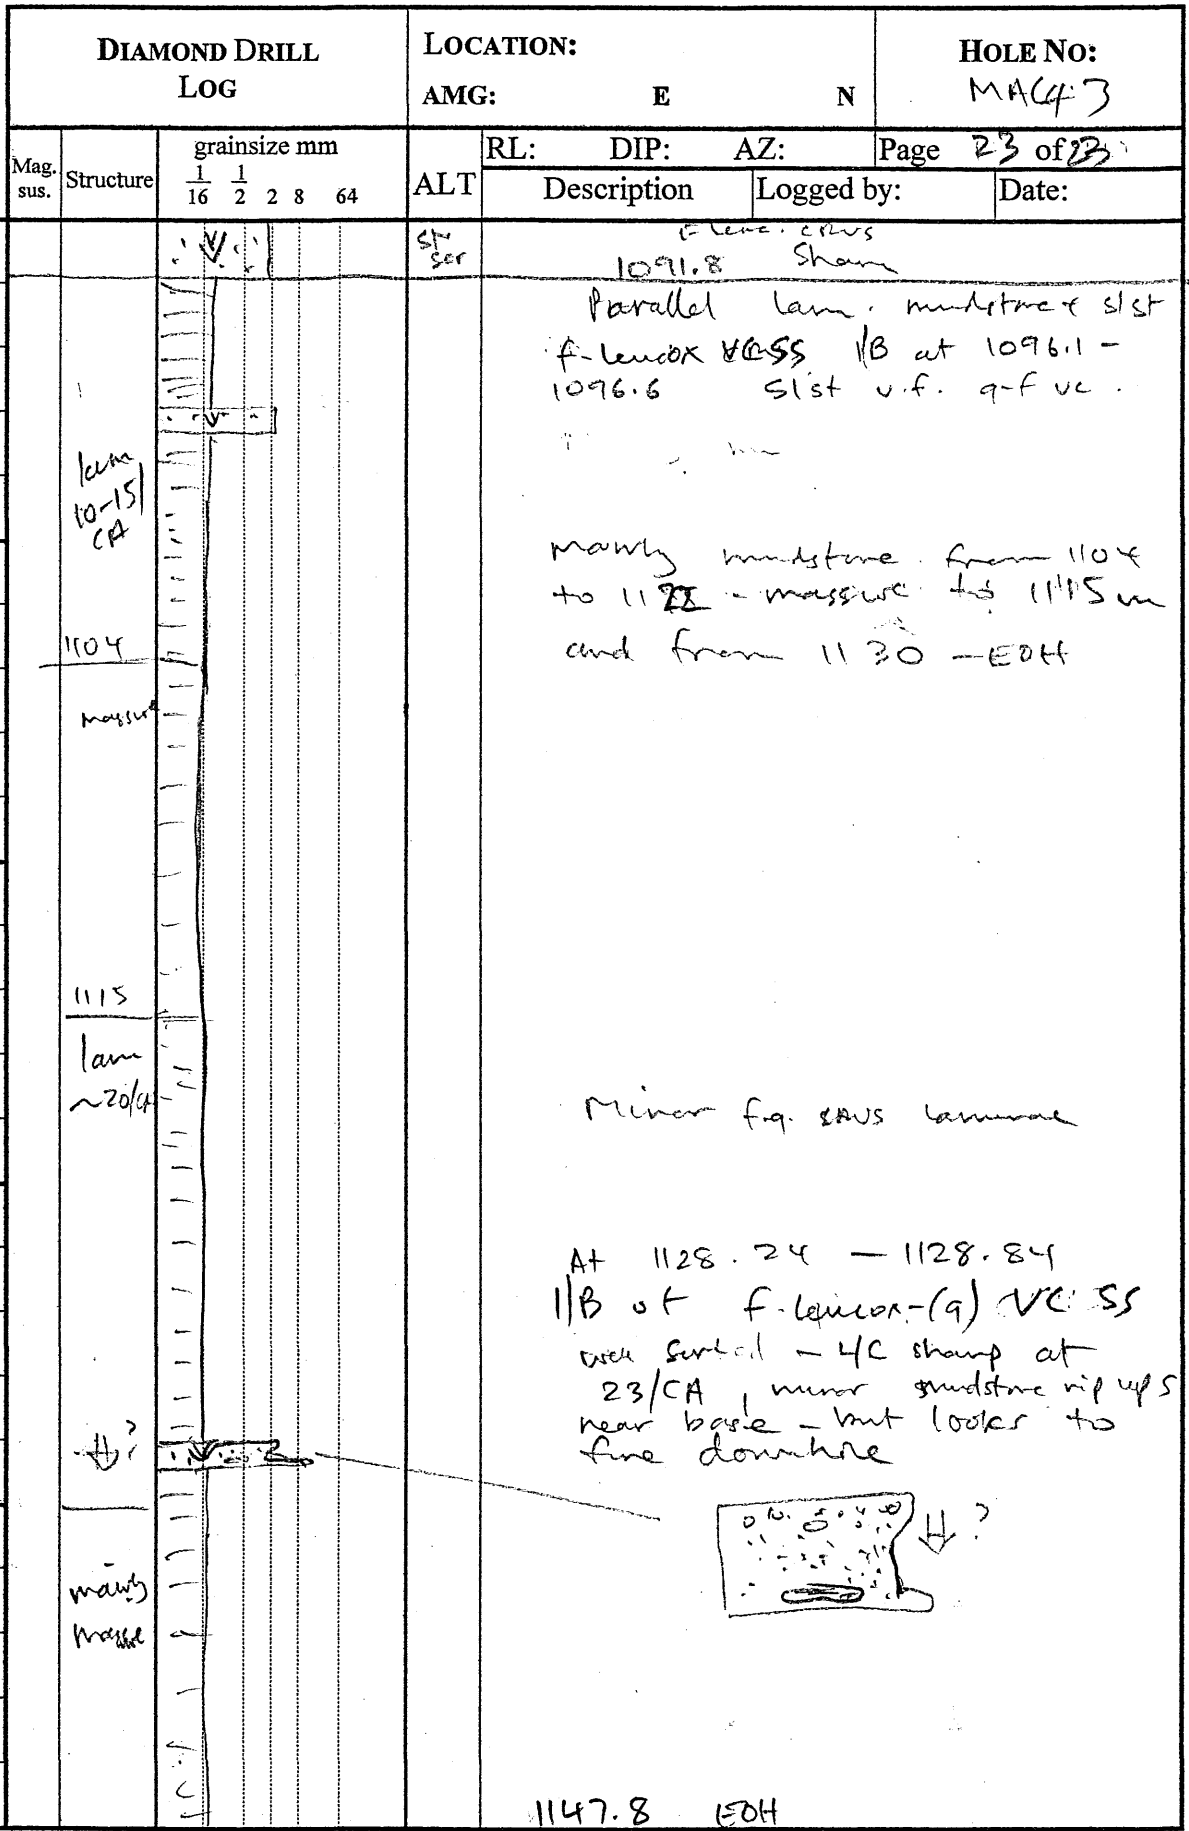 DIAMOND DRILL
LOG
LOCATION:
AMG: E N
HOLE NO:
MAC43
Mag.
sus.
Structure
grainsize mm
1/16 1/2 2 8 64
ALT
RL: DIP: AZ:
Page 23 of 23
Description
Logged by:
Date:
st
ser
1091.8 Sharp
Parallel lam. mudstone & slst
f-leucox VCSS I/B at 1096.1 -
1096.6 slst v.f. q-f vc.
lam
10-15/
CA
Mainly mudstone from 1104
to 1122 - massive to 1115m
and from 1130 - EOH
1104
massive
1115
lam
~20/CA
Minor f.g. laminae
At 1128.24 - 1128.84
I/B of f-leucox-(q) VC SS
well sorted - L/C sharp at
23/CA, minor mudstone rip ups
near base - but looks to
fine downhole
?
?
mainly
massive
1147.8 EOH